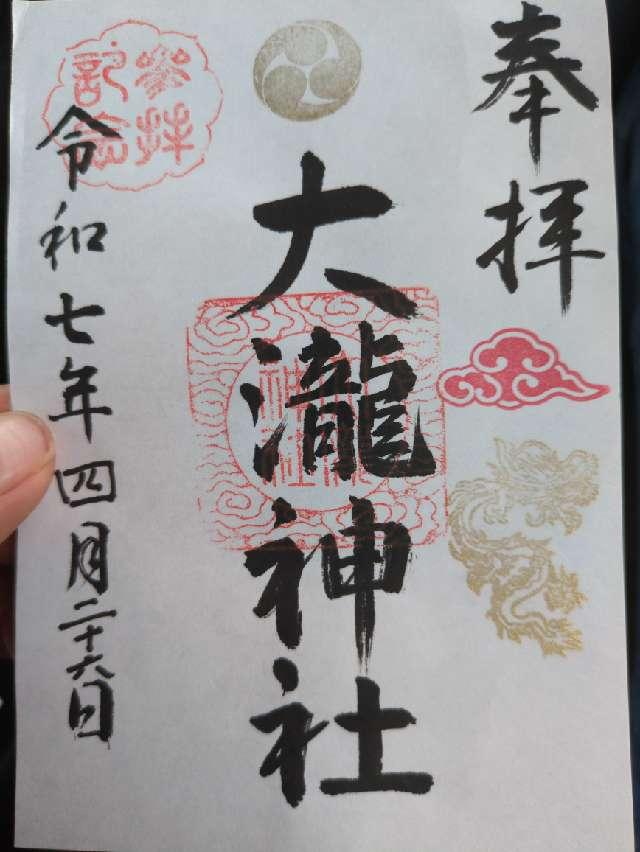 奉拝
大瀧神社
令和七年四月二十六日
参拝
記念